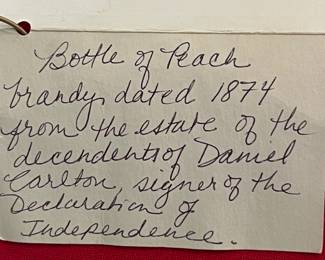 Bottle of Peach
brandy, dated 1874
from the estate of the
decendents of Daniel
Carlton, signer of the
Declaration of
Independence.